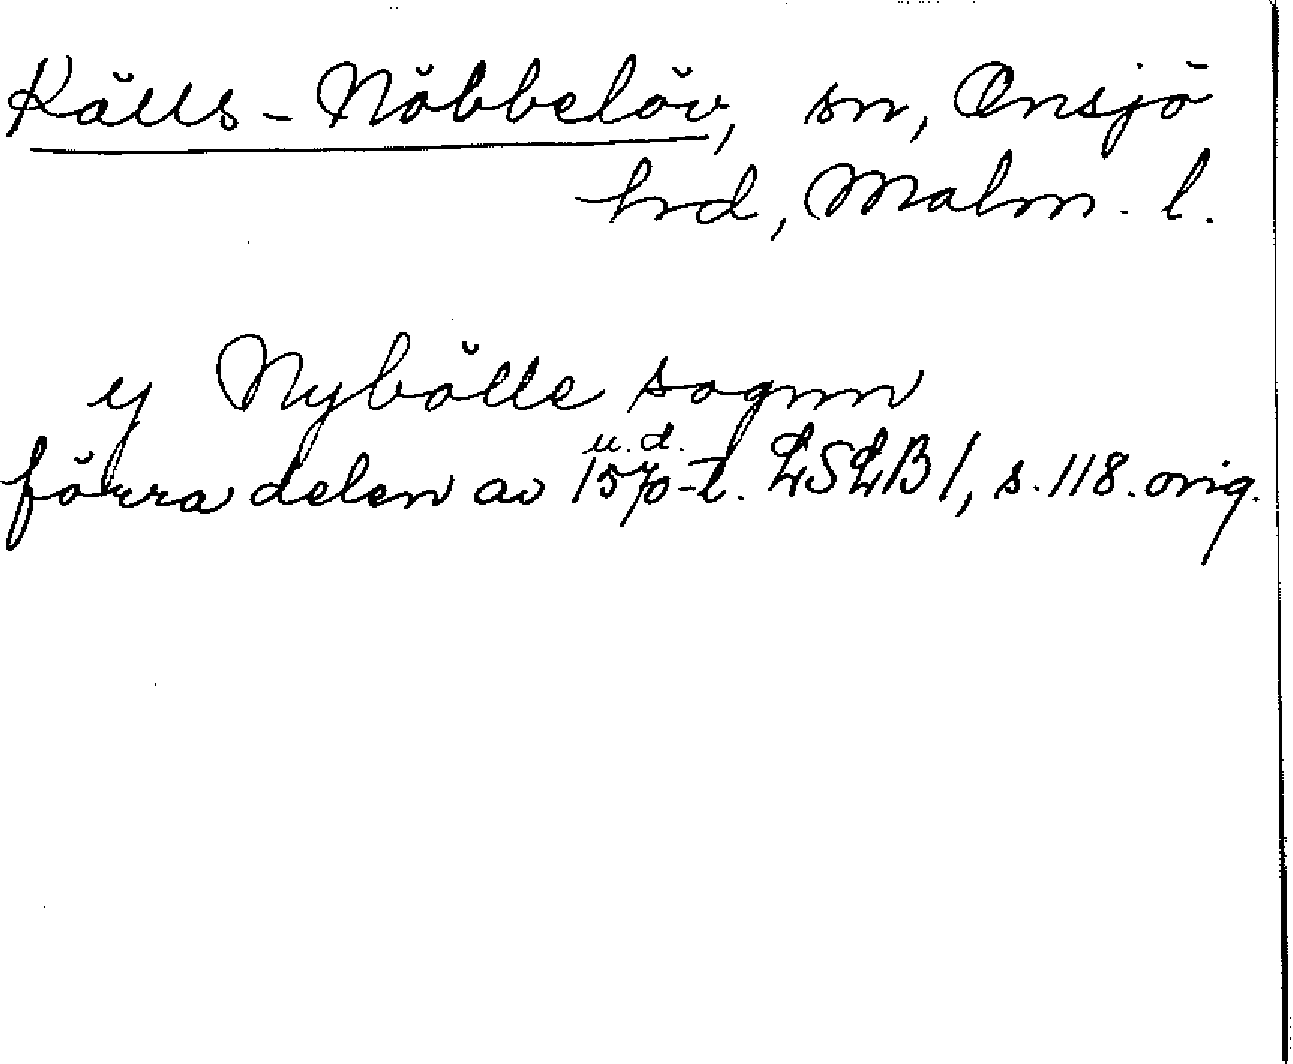 Källs-Nöbbelöv, sn, Onsjö
hrd, Malm. l.
y Nybölle sognn
u.d.
förra delen av 1570-t. LSLB1, s. 118. orig.